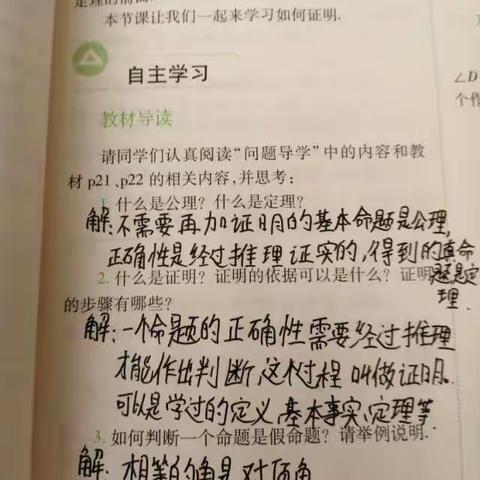 本节课让我们一起来学习如何证明.
自主学习
教材导读
请同学们认真阅读“问题导学”中的内容和教
材 p21、p22 的相关内容,并思考:
1. 什么是公理? 什么是定理?
解:不需要再加证明的基本命题是公理,
正确性是经过推理证实的,得到的真命
题是定
理.
2. 什么是证明? 证明的依据可以是什么? 证明
的步骤有哪些?
解:一个命题的正确性需要经过推理
才能作出判断,这个过程叫做证明.
可以是学过的定义、基本事实、定理等.
3. 如何判断一个命题是假命题? 请举例说明.
解:相等的角是对顶角
∠D
个作